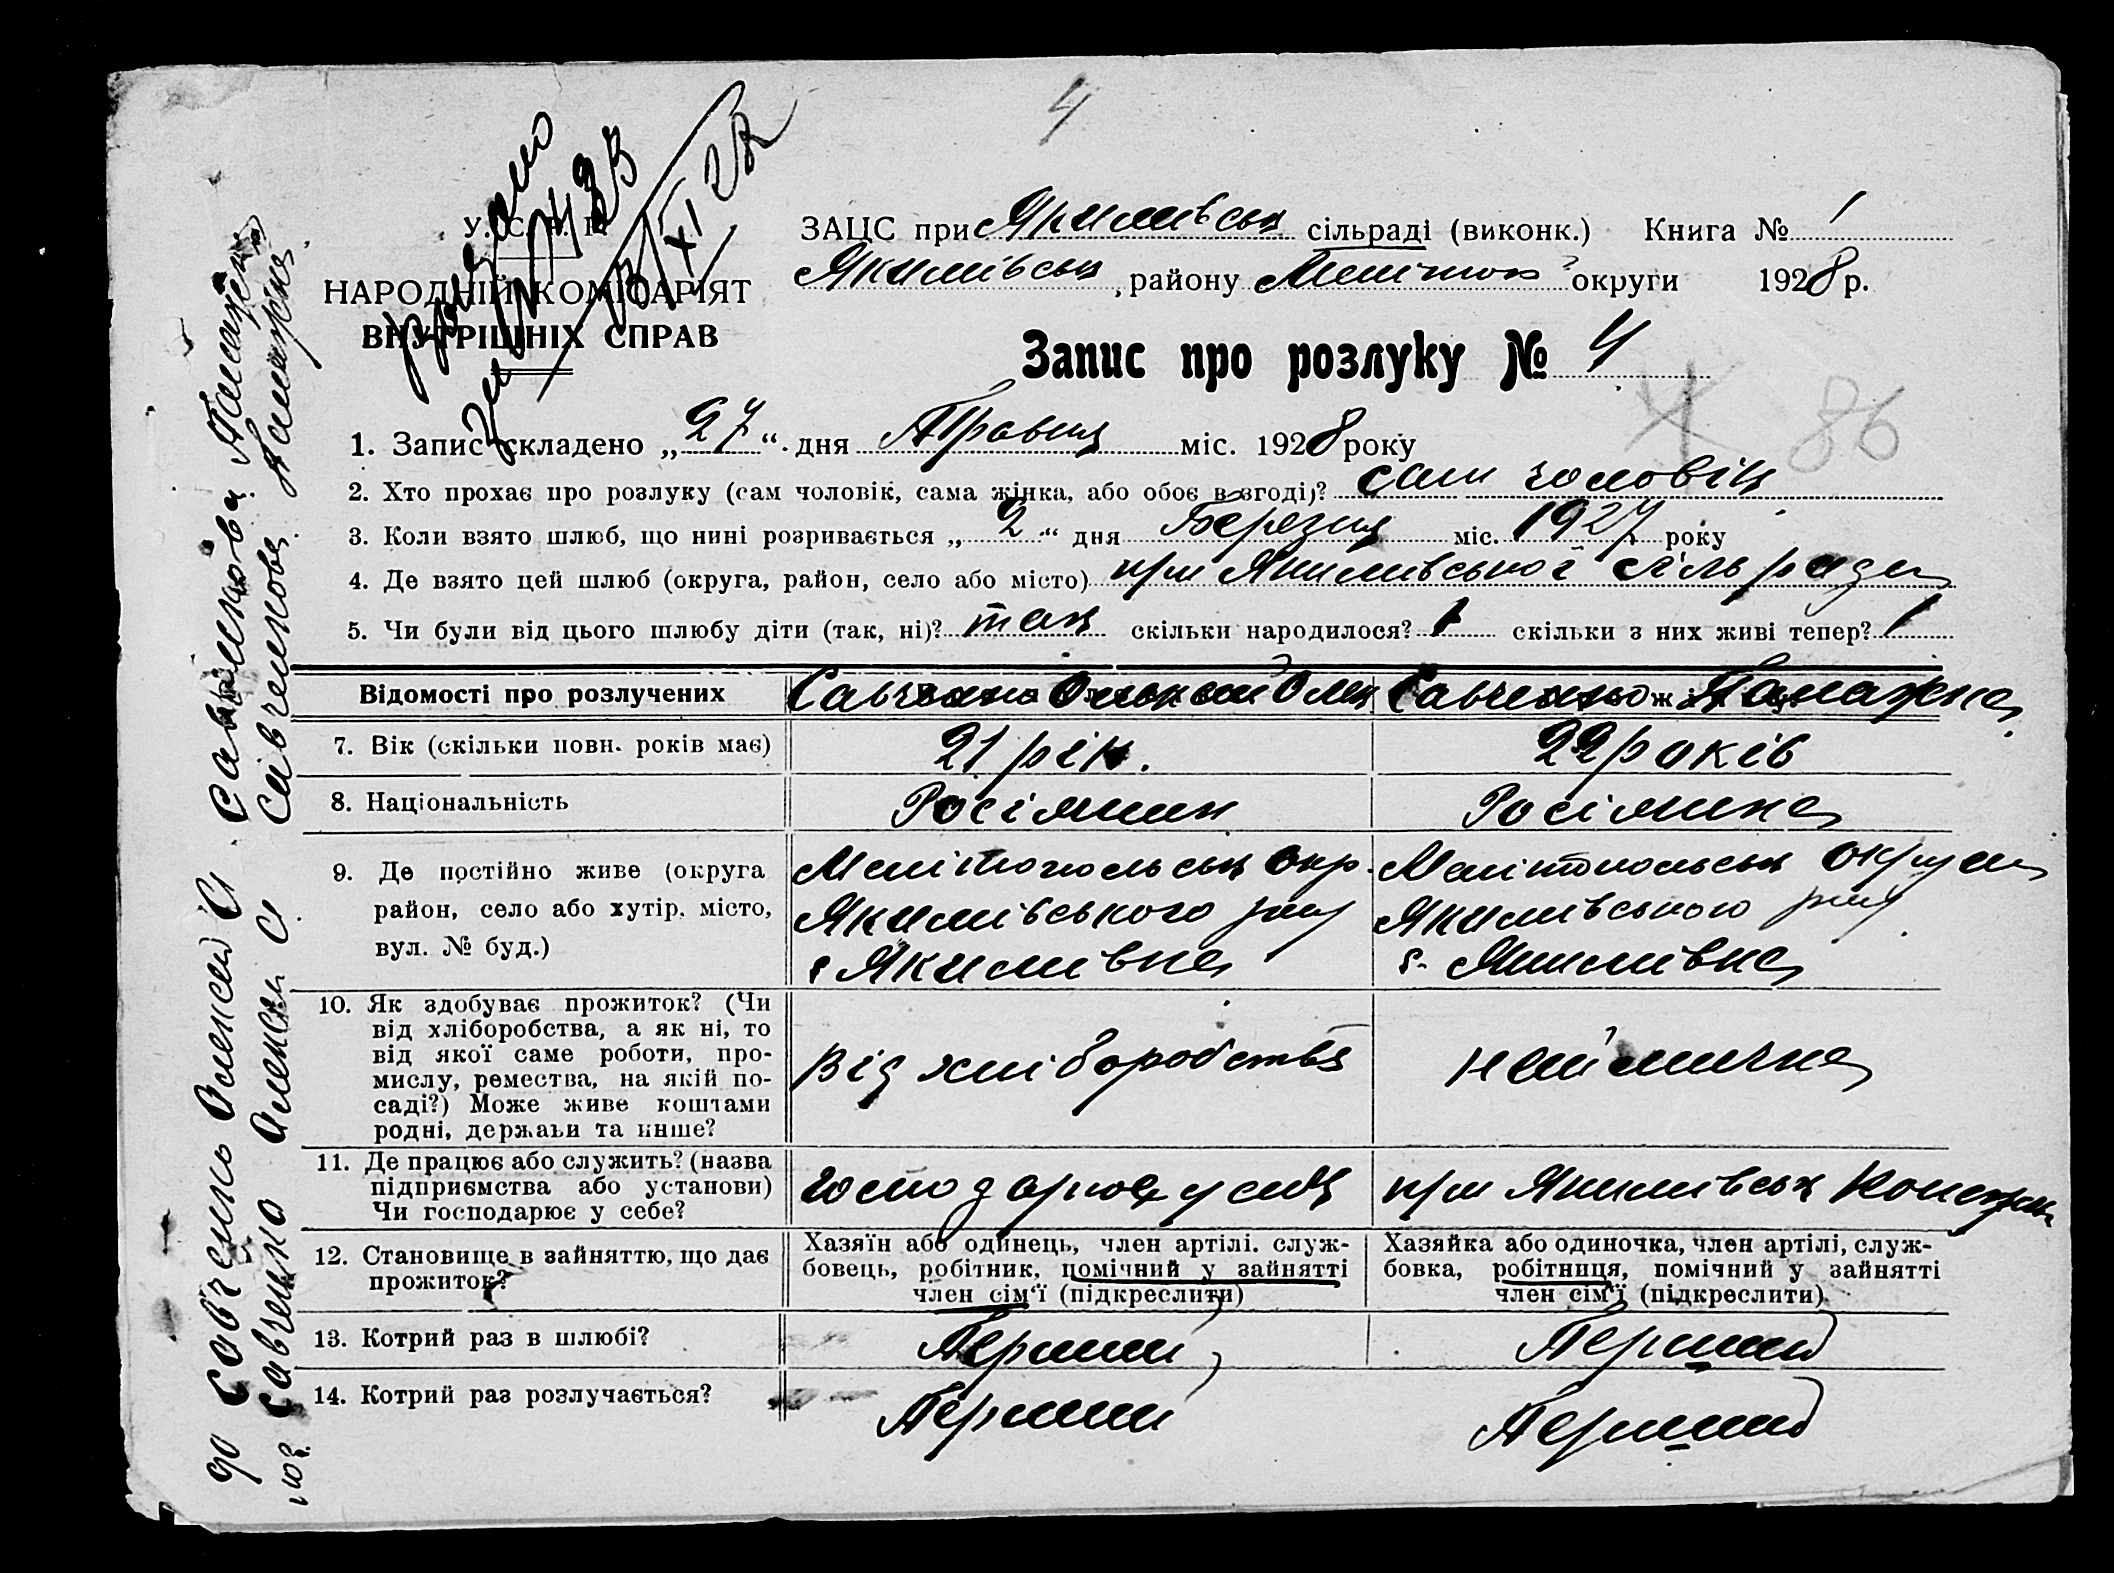 4
У. С. Р. Р.
НАРОДНІЙ КОМІСАРІЯТ
ВНУТРІШНІХ СПРАВ
ЗАЦС при Якимівськ сільраді (виконк.) Книга № 1
Якимівськ, району Меліток округи 1928 р.
Запис про розлуку № 4
86
1. Запис складено „27“ дня Травня міс. 1928 року
2. Хто прохає про розлуку (сам чоловік, сама жінка, або обоє в згоді)? сам чоловік
3. Коли взято шлюб, що нині розривається „2“ дня Березня міс. 1927 року
4. Де взято цей шлюб (округа, район, село або місто) при Якимівської сільради
5. Чи були від цього шлюбу діти (так, ні)? так скільки народилося? 1 скільки з них живі тепер? 1
Відомості про розлучених Савченко Олексій Савченко
7. Вік (скільки повн. років має) 21 рік. 22 років
8. Національність Росіянин Росіянка
9. Де постійно живе (округа район, село або хутір, місто, вул. № буд.)
Мелітопольськ Окр. Мелітопольськ округи
Якимівського рну Якимівського рну
с Якимівка с. Якимівка
10. Як здобуває прожиток? (Чи
від хліборобства, а як ні, то
від якої саме роботи, про-
мислу, ремества, на якій по-
саді?) Може живе коштами
родні, держави та инше?
Від хліборобства наймичка
11. Де працює або служить? (назва
підприємства або установи)
Чи господарює у себе?
господарює у сім'ї при Якимівськ
12. Становище в зайняттю, що дає
прожиток?
Хазяїн або одинець, член артілі. служ-
бовець, робітник, помічний у зайнятті
член сім'ї (підкреслити)
Хазяйка або одиночка, член артілі, служ-
бовка, робітниця, помічний у зайнятті
член сім'ї (підкреслити)
13. Котрий раз в шлюбі? Перший Перший
14. Котрий раз розлучається? Перший Перший
до Савченко Олексій
Савченко